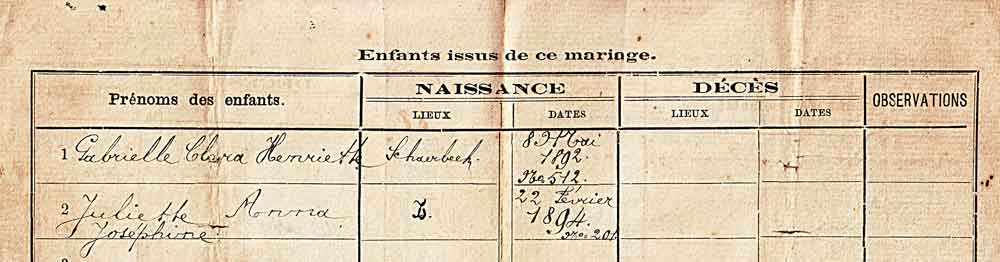 Enfants issus de ce mariage.
Prénoms des enfants. NAISSANCE DÉCÈS OBSERVATIONS
LIEUX DATES LIEUX DATES
1 Gabrielle Clara Henriette Schaerbeek. 8 Mai
1892.
No 512.
2 Juliette Anna 22 Février
Joséphine 1894.
No 201